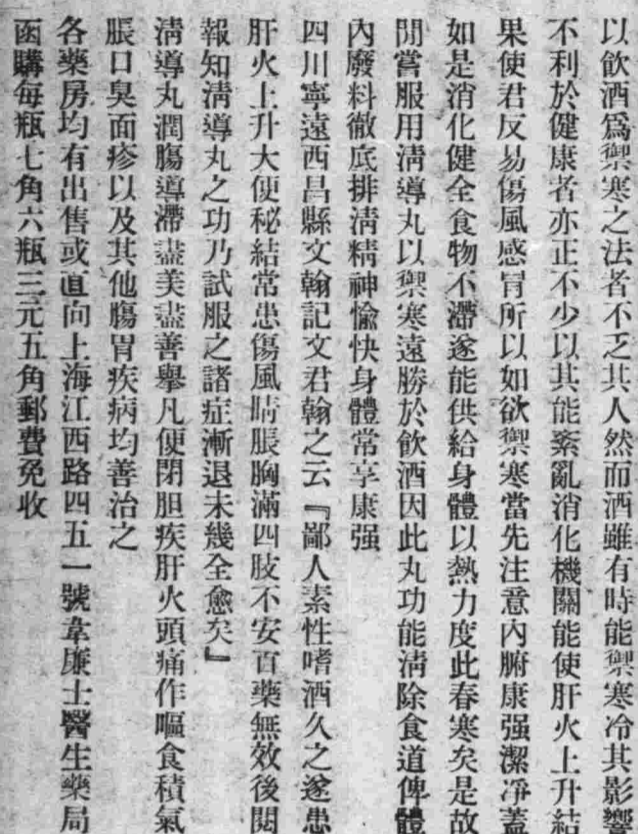 以飲酒爲禦寒之法者不乏其人然而酒雖有時能禦寒冷其影響
不利於健康者亦正不少以其能紊亂消化機關能使肝火上升結
果使君反易傷風感冒所以如欲禦寒當先注意內腑康强潔淨蓋
如是消化健全食物不滯遂能供給身體以熱力度此春寒矣是故
閒嘗服用淸導丸以禦寒遠勝於飲酒因此丸功能淸除食道俾體
內廢料徹底排淸精神愉快身體常享康强
四川寧遠西昌縣文翰記文君翰之云『鄙人素性嗜酒久之遂患
肝火上升大便秘結常患傷風睛脹胸滿四肢不安百藥無效後閱
報知淸導丸之功乃試服之諸症漸退未幾全愈矣』
淸導丸潤腸導滯盡美盡善舉凡便閉胆疾肝火頭痛作嘔食積氣
脹口臭面疹以及其他腸胃疾病均善治之
各藥房均有出售或直向上海江西路四五一號韋廉士醫生藥局
函購每瓶七角六瓶三元五角郵費免收